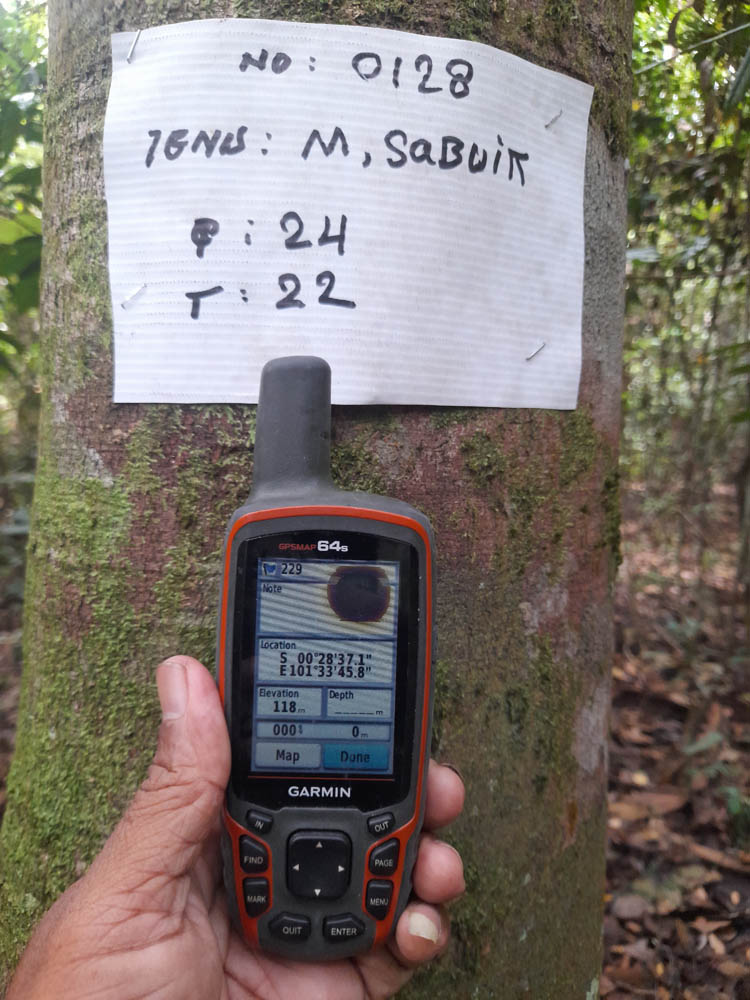 NO: 0128
JENIS: M, SABUIK
φ: 24
T: 22
GPSMAP 64s
229
Note
Location
S 00°28'37.1"
E 101°33'45.8"
Elevation Depth
118 m _____ m
000° 0 m
Map Done
GARMIN
IN OUT
FIND PAGE
MARK MENU
QUIT ENTER